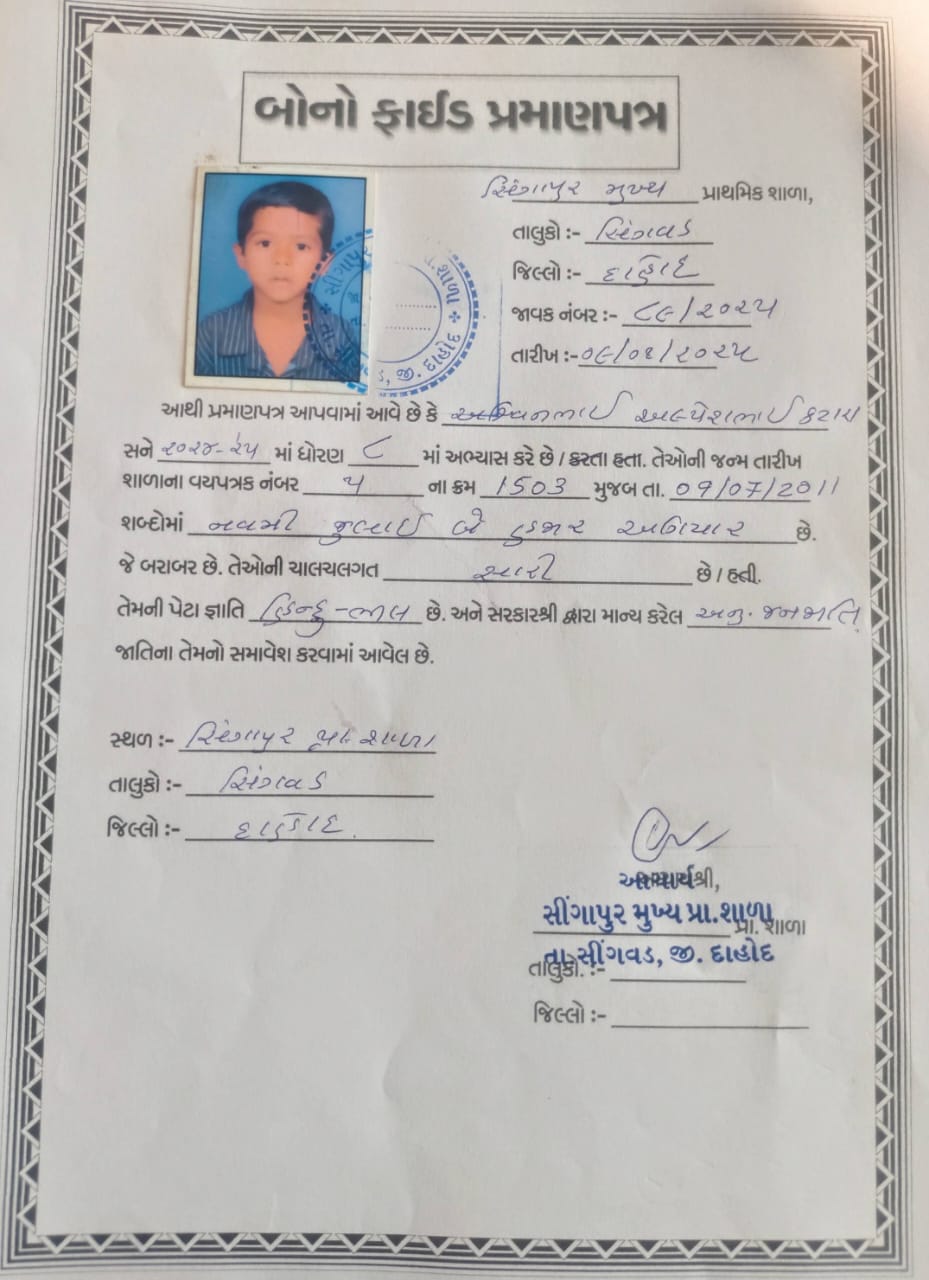 બોનો ફાઈડ પ્રમાણપત્ર
સિંગાપુર મુખ્ય પ્રાથમિક શાળા,
તાલુકો :- સિંગવડ
જિલ્લો :- દાહોદ
જાવક નંબર :- ૮૯/૨૦૨૫
તારીખ :- ૦૯/૦૧/૨૦૨૫
સીંગાપુર
શાળા
જી. દાહોદ
આથી પ્રમાણપત્ર આપવામાં આવે છે કે અલ્પેશભાઈ કટારા
સને ૨૦૨૪-૨૫ માં ધોરણ ૮ માં અભ્યાસ કરે છે / કરતા હતા. તેઓની જન્મ તારીખ
શાળાના વયપત્રક નંબર ૫ ના ક્રમ 1503 મુજબ તા. 09/07/2011
શબ્દોમાં નવમી જુલાઈ બે હજાર અગિયાર છે.
જે બરાબર છે. તેઓની ચાલચલગત સારી છે / હતી.
તેમની પેટા જ્ઞાતિ હિન્દુ-ભીલ છે. અને સરકારશ્રી દ્વારા માન્ય કરેલ અનુ. જનજાતિ
જાતિના તેમનો સમાવેશ કરવામાં આવેલ છે.
સ્થળ :- સિંગાપુર પ્રા. શાળા
તાલુકો :- સિંગવડ
જિલ્લો :- દાહોદ.
આચાર્યશ્રી,
સીંગાપુર મુખ્ય પ્રા.શાળા
પ્રા. શાળા
તા.સીંગવડ, જી. દાહોદ
તાલુકો. :-
જિલ્લો :-